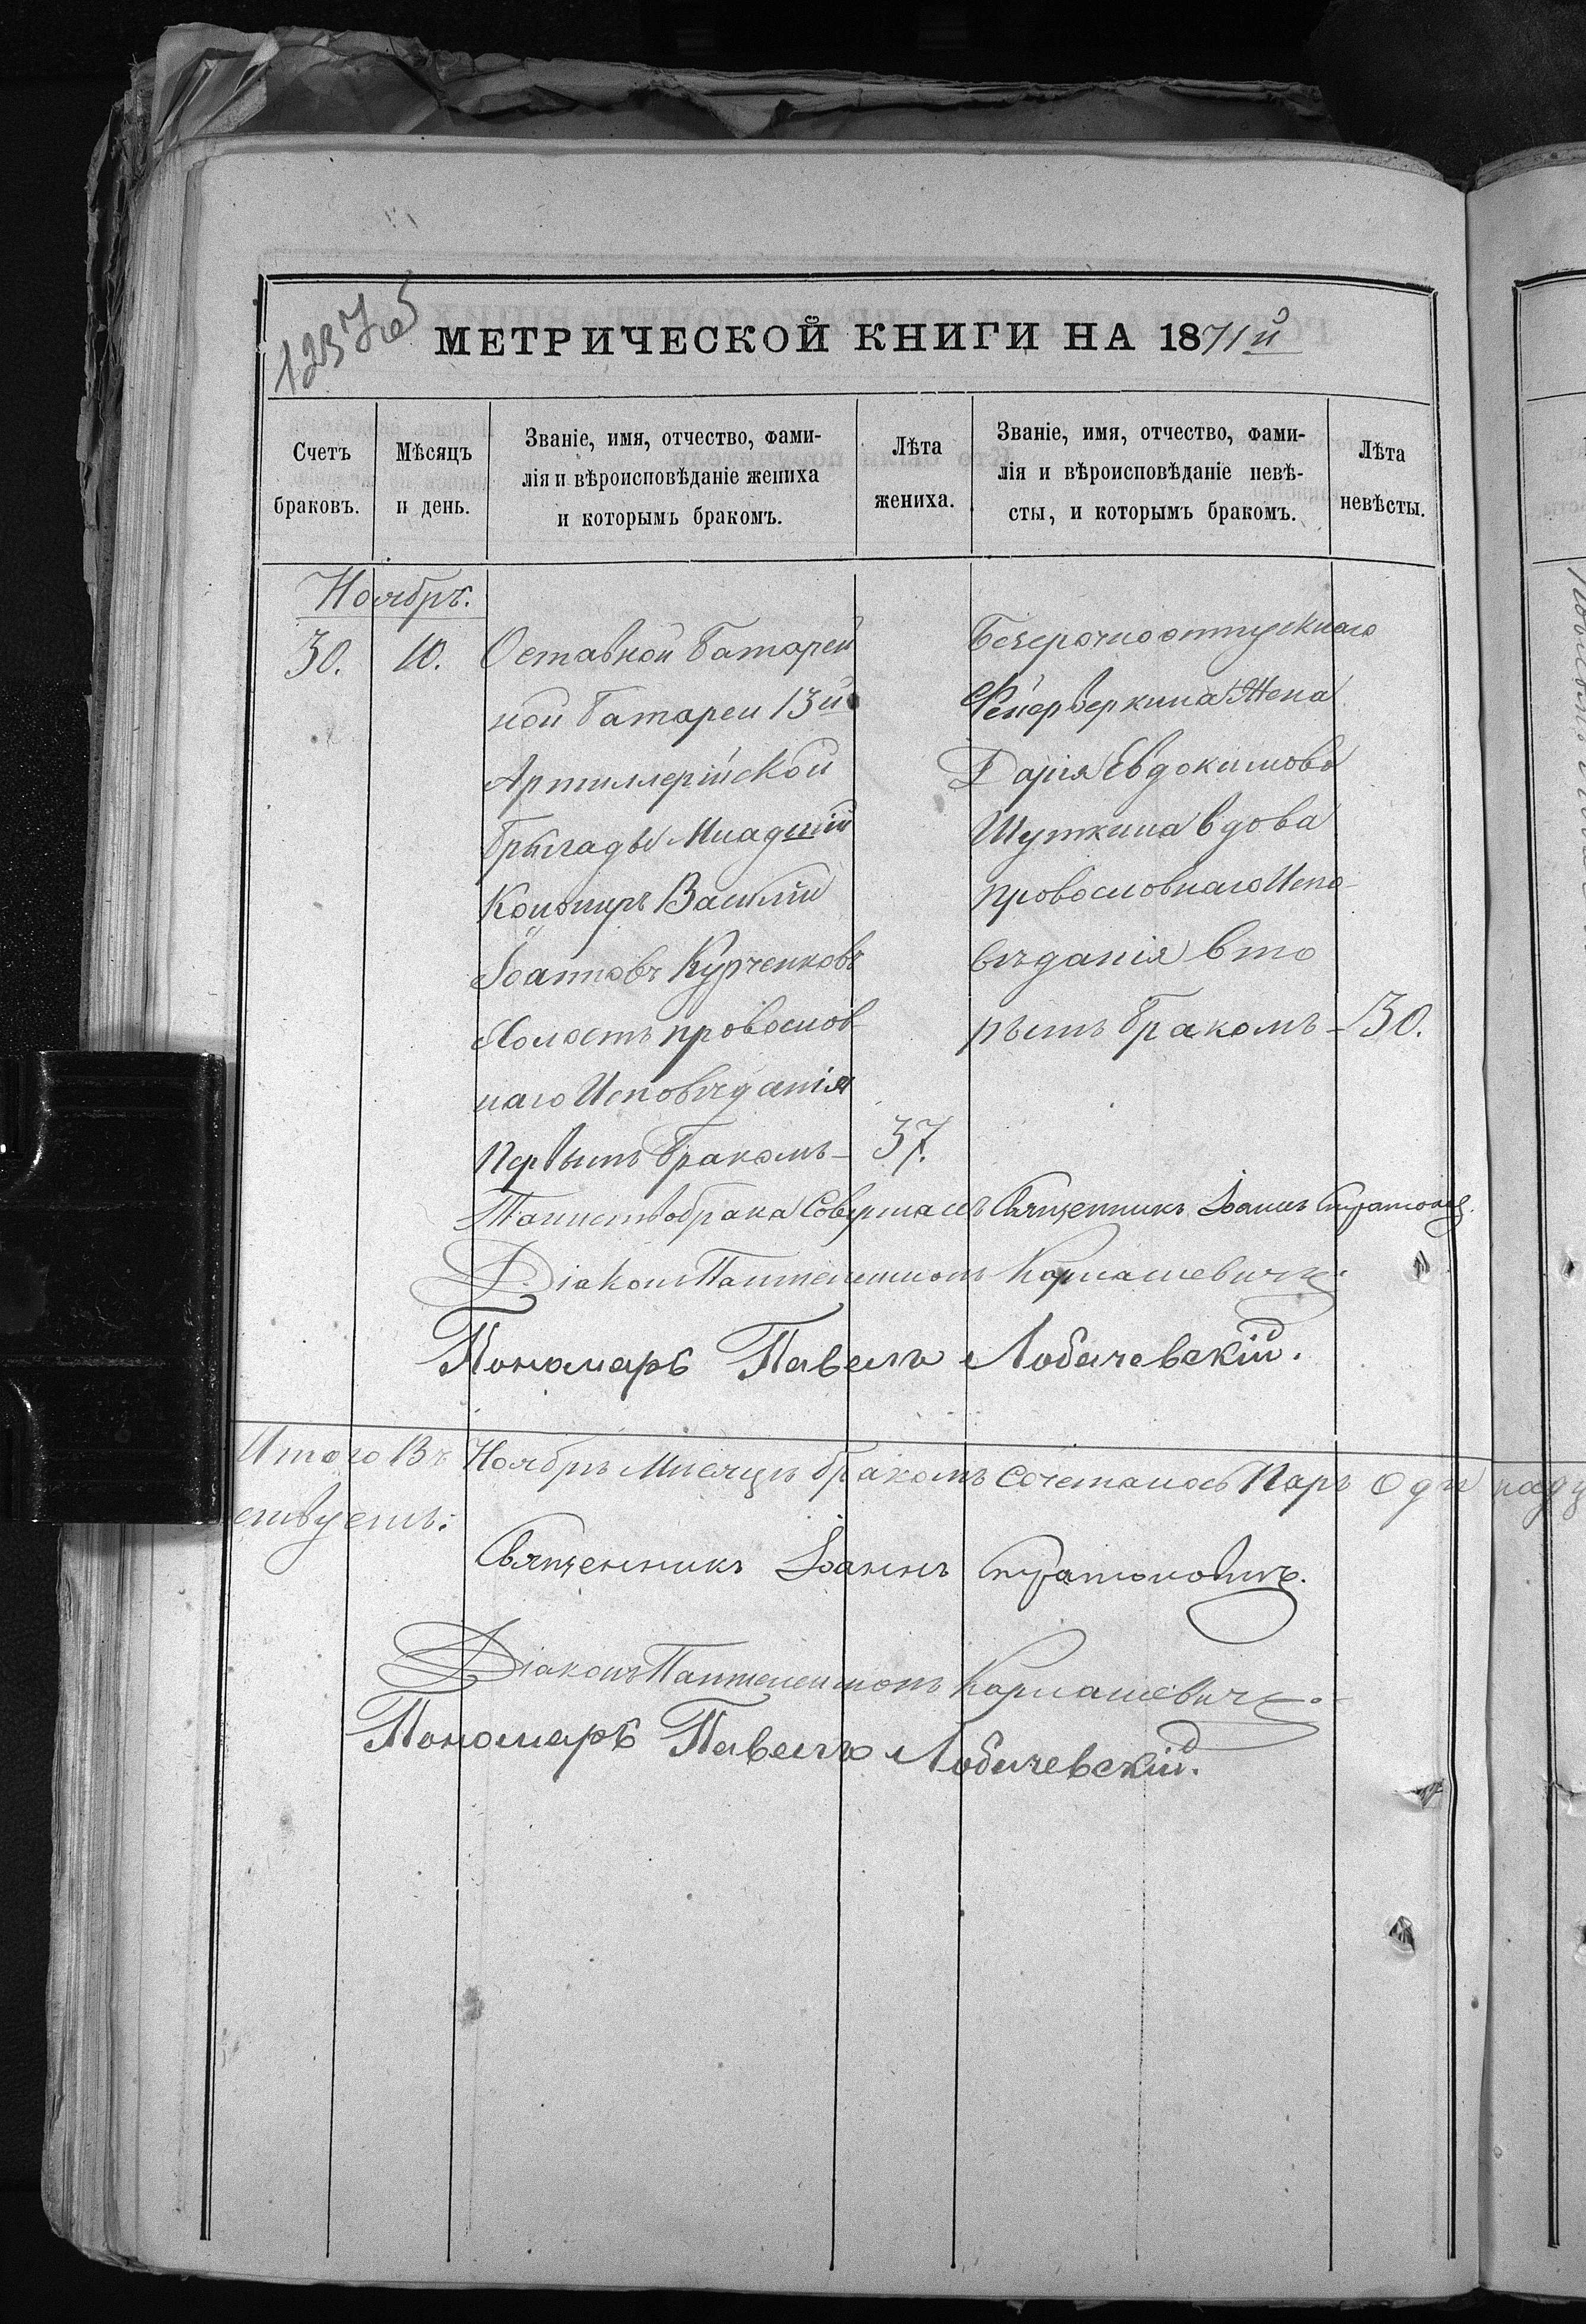 1237 об
МЕТРИЧЕСКОЙ КНИГИ НА 1871й
Счетъ браковъ.
Мѣсяцъ и день.
Званіе, имя, отчество, фами-
лія и вѣроисповѣданіе жениха
и которымъ бракомъ.
Лѣта жениха.
Званіе, имя, отчество, фами-
лія и вѣроисповѣданіе невѣ-
сты, и которымъ бракомъ.
Лѣта невѣсты.
Ноябръ.
30.
10.
Оставной батарей
ной батареи 13й
Артиллерійской
бригады Младшій
Конониръ Василій
Іоанновъ Курченковъ
Холостъ провослов
наго Исповѣданія
Первымъ бракомъ —
37.
Безсрочноотпускнаго
Фейерверкина Жена
Дарія Евдокимова
Шуткина вдова
провословнаго Испо-
вѣданія вто
рымъ бракомъ —
30.
Таинство брака Совершалъ Священникъ Іоаннъ
Діаконъ Пантелеимонъ Карпашевичъ.
Пономарь Павелъ Лобачевскій.
Итого Въ Ноябрѣ Мѣсяцѣ бракомъ Сочеталось Паръ Одинадц
ествуетъ:
Священникъ Іоаннъ
Діаконъ Пантелеимонъ Карпашевичъ.
Пономарь Павелъ Лобачевскій.